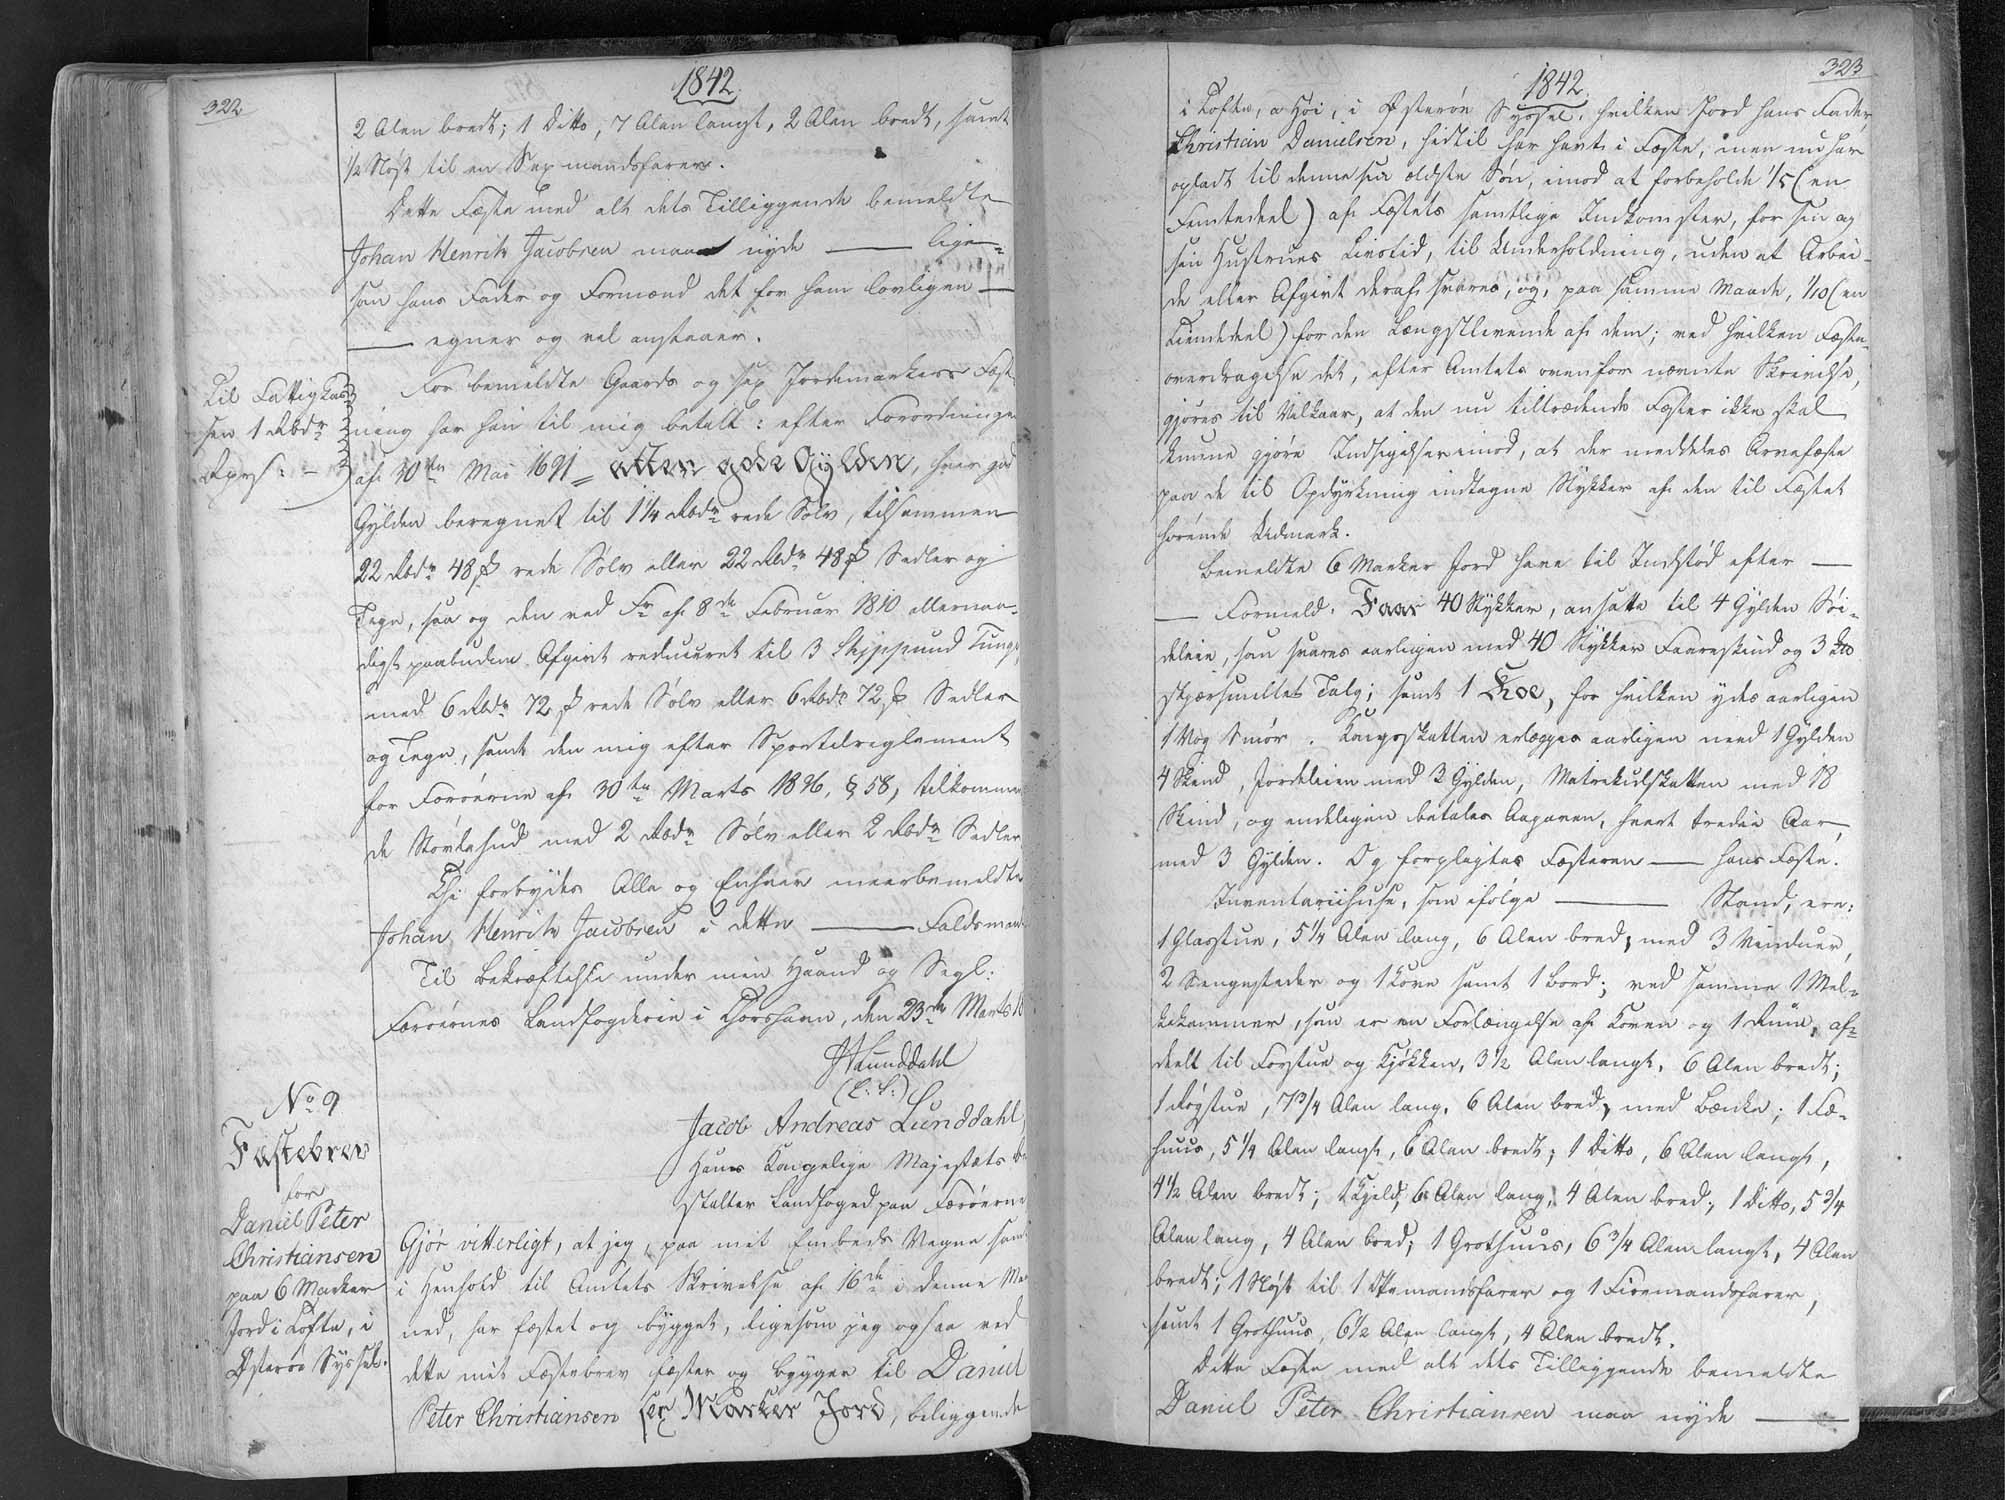 322
1842.
2 Alen bredt; 1 Ditto, 7 Alen langt, 2 Alen bredt, samt
1/2 Nøst til en Sexmandsfarer.
Dette Fæste med alt dets Tilliggende bemeldte
Johan Henrik Jacobsen maa nyde — lige=
som hans Fader og Formænd det for ham lovligen —
— egner og vel anstaaer.
Til Fattigkas=
sen 1 Rbdr
For bemeldte Gaards og sex Jordemarkers Fæst=
ning har han til mig betalt: efter Forordningen
af 30te Mai 1691 = atten gode Gylden, hver god
Gylden beregnet til 1 1/4 Rbdr rede Sølv, tilsammen
22 Rbdr 48 β rede Sølv eller 22 Rbdr 48 β Sedler og
Tegn, saa og den ved Fr af 8de Februar 1810 allernaa=
digst paabudne Afgivt reduceret til 3 Skippund Tunge,
med 6 Rbdr 72 β rede Sølv eller 6 Rbdr 72 β Sedler
og Tegn, samt den mig efter Sportelreglement
for Færøerne af 30te Marts 1836, § 58, tilkommen
de Støvlehud med 2 Rbdr Sølv eller 2 Rbdr Sedler
Thi forbydes Alle og Enhver meerbemeldte
Johan Henrik Jacobsen i dette — Faldsmaal
Til Bekræftelse under min Haand og Segl:
Færøernes Landfogderie i Thorshavn, den 23de Marts
Lunddahl
(L. S.)
No 9
Fæstebrev
for
Daniel Peter
Christiansen
paa 6 Marker
Jord i Kofte, i
Østerøe Syssel.
Jacob Andreas Lunddahl,
Hans Kongelige Majestæts be
stalter Landfoged paa Færøerne
Gjør vitterligt, at jeg, paa mit Embeds Vegne samt
i Henhold til Amtets Skrivelse af 16de i denne Maa
ned, har fæstet og bygget, ligesom jeg ogsaa ved
dette mit Fæstebrev fæster og bygger til Daniel
Peter Christiansen sex Marker Jord, beliggende
323
1842.
i Kofte, a Høi, i Østerøe Syssel, hvilken Jord hans Fader,
Christian Danielsen, hidtil har havt i Fæste, men nu har
opladt til denne sin ældste Søn, imod at forbeholde 1/5 (en
Femtedeel) af Fæstets samtlige Indkomster, for sin og
sin Hustrues Livstid, til Underholdning, uden at Arbei=
de eller Afgivt deraf svares, og, paa samme Maade, 1/10 (en
Tiendedeel) for den Længstlevende af dem; ved hvilken Fæste=
overdragelse det, efter Amtets ovenfor nævnte Skrivelse,
gjøres til Vilkaar, at den nu tiltrædende Fæster ikke skal
kunne gjøre Indsigelser imod, at der meddeles Arvefæste
paa de til Opdyrkning indtagne Stykker af den til Fæstet
hørende Udmark.
Bemeldte 6 Marker Jord have til Indstød efter —
— Formeld. Faar 40 Stykker, ansatte til 4 Gylden Søi=
deleie, som svares aarligen med 40 Stykker Faareskind og 3
skjærsmeltet Talg; samt 1 Koe, for hvilken ydes aarligen
1 Vog Smør. Kongsskatten erlægges aarligen med 1 Gylden
4 Skind, Jordeleien med 2 Gylden, Matrikulskatten med 18
Skind, og endeligen betales Aagaven, hvert tredie Aar,
med 3 Gylden. Og forpligtes Fæsteren — hans Fæste.
Inventariihuse, som ifølge — Stand, ere:
1 Glasstue, 5 1/4 Alen lang, 6 Alen bred, med 3 Vinduer,
2 Sengesteder og 1 Kove samt 1 Bord; ved samme 1 Mel=
kekammer, som er en Forlængelse af Koven og 1 Rum, af=
deelt til Forstue og Kjøkken, 3 1/2 Alen langt, 6 Alen bredt;
1 Røgstue, 7 3/4 Alen lang, 6 Alen bred, med Bænke; 1 Fæ=
huus, 5 1/4 Alen langt, 6 Alen bredt; 1 Ditto, 6 Alen langt,
4 1/2 Alen bredt; 1 Hjeld, 6 Alen lang, 4 Alen bred; 1 Ditto, 5 3/4
Alen lang, 4 Alen bred; 1 Grothuus, 6 3/4 Alen langt, 4 Alen
bredt; 1 Nøst til 1 Ottemandsfarer og 1 Firemandsfarer,
samt 1 Grothuus, 6 1/2 Alen langt, 4 Alen bredt.
Dette Fæste med alt dets Tilliggende bemeldte
Daniel Peter Christiansen maa nyde —